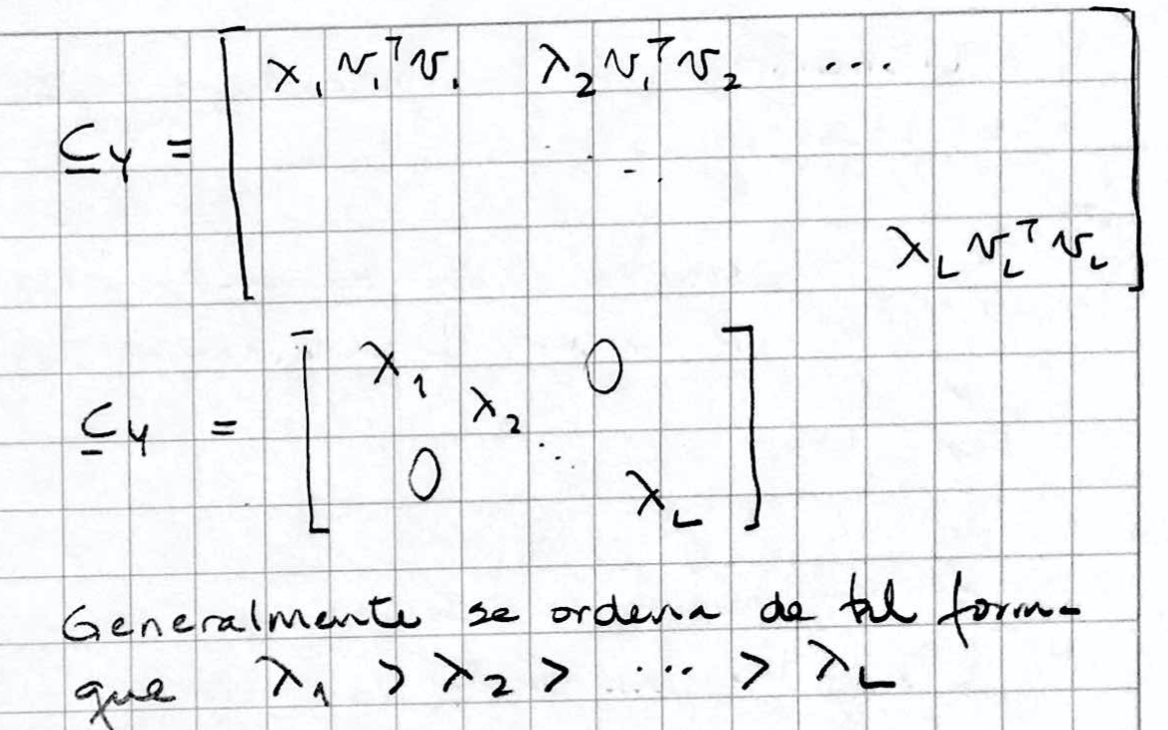 C_Y = [ λ₁ v₁ᵀ v₁ λ₂ v₁ᵀ v₂ ...
⋱
λ_L v_Lᵀ v_L ]
C_Y = [ λ₁ 0
λ₂ ⋱
0 λ_L ]
Generalmente se ordena de tal forma
que λ₁ > λ₂ > ... > λ_L